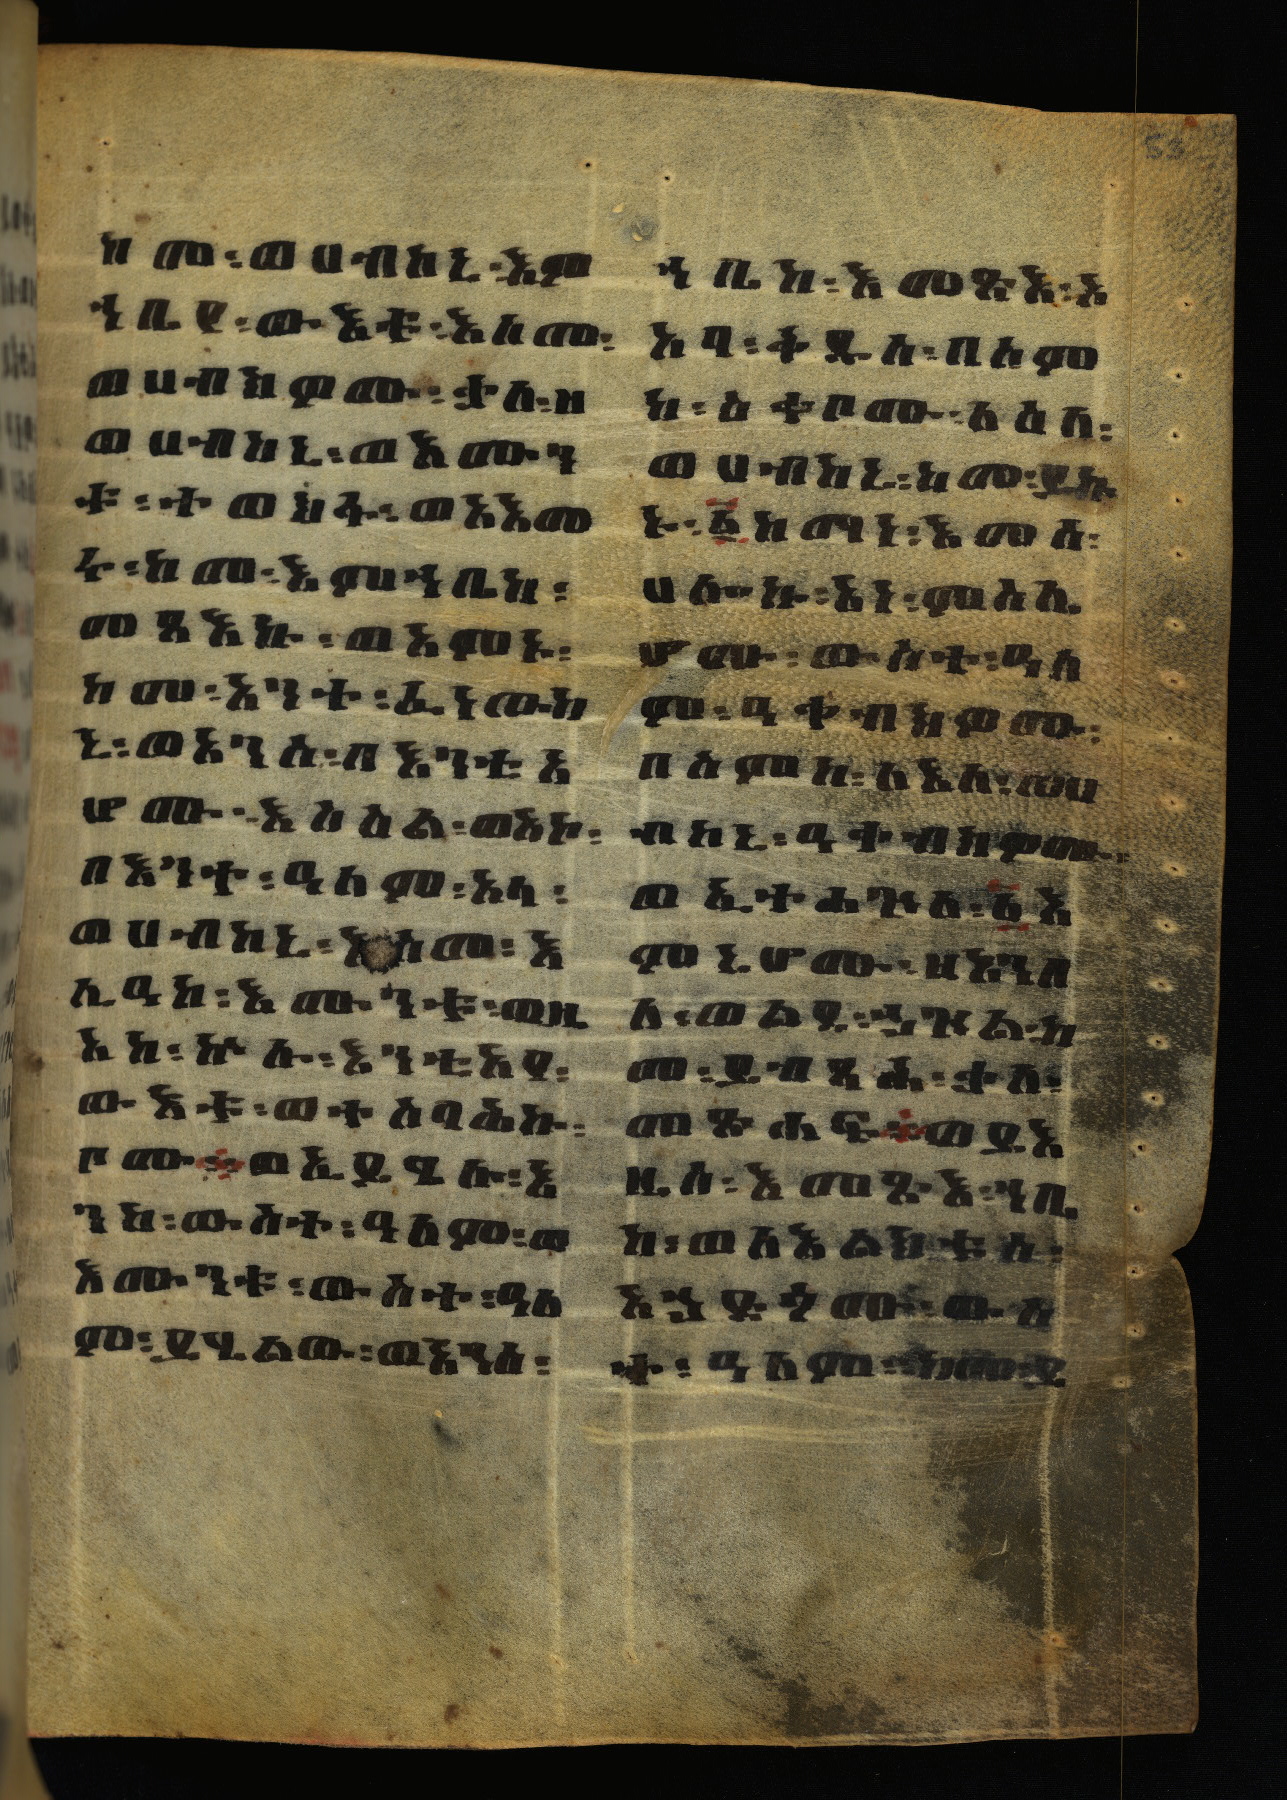 ከመ፡ወሀብከኒ፡እም
ኀቤየ፡ውእቱ፡እስመ፡
ወሀብክዎሙ፡ቃለ፡ዘ
ወሀብከኒ፡ወእሙን
ቱ፡ተወክፉ፡ወአእመ
ሩ፡ከመ፡እምኀቤከ፡
መጻእኩ፡ወአምኑ፡
ከመ፡አንተ፡ፈነውከ
ኒ፡ወአንሰ፡በእንቲአ
ሆሙ፡እስእል፡ወአኮ፡
በእንተ፡ዓለም፡አላ፡
ወሀብከኒ፡እስመ፡እ
ሊአከ፡እሙንቱ፡ወዚ
አከ፡ኵሉ፡እንቲአየ፡
ውእቱ፡ወተሰባሕኩ፡
ቦሙ፡ወኢይሄሉ፡እ
ንከ፡ውስተ፡ዓለም፡ወ
እሙንቱ፡ውስተ፡ዓለ
ም፡ይሄልው፡ወአንሰ፡
ኀቤከ፡እመጽእ፡አ
አባ፡ቅዱስ፡በስም
ከ፡ዕቀቦሙ፡ለእለ፡
ወሀብከኒ፡ከመ፡ይኩ
ኑ፡፩ከማነ፡እመሰ፡
ሀሎኩ፡አነ፡ምስሌ
ሆሙ፡ውስተ፡ዓለ
ም፡ዓቀብክዎሙ፡
በስምከ፡ለእለ፡ወሀ
ብከኒ፡ዓቀብክዎሙ፡
ወኢተሐጕለ፡፩እ
ምኔሆሙ፡ዘእንበ
ለ፡ወልደ፡ኀጕል፡ከ
መ፡ይብጻሕ፡ቃለ፡
መጽሐፍ፡ወይእ
ዜሰ፡እመጽእ፡ኀቤ
ከ፡ወለእልክቱሰ፡
አኀድጎሙ፡ውስ
ተ፡ዓለም፡ከመ፡ይ